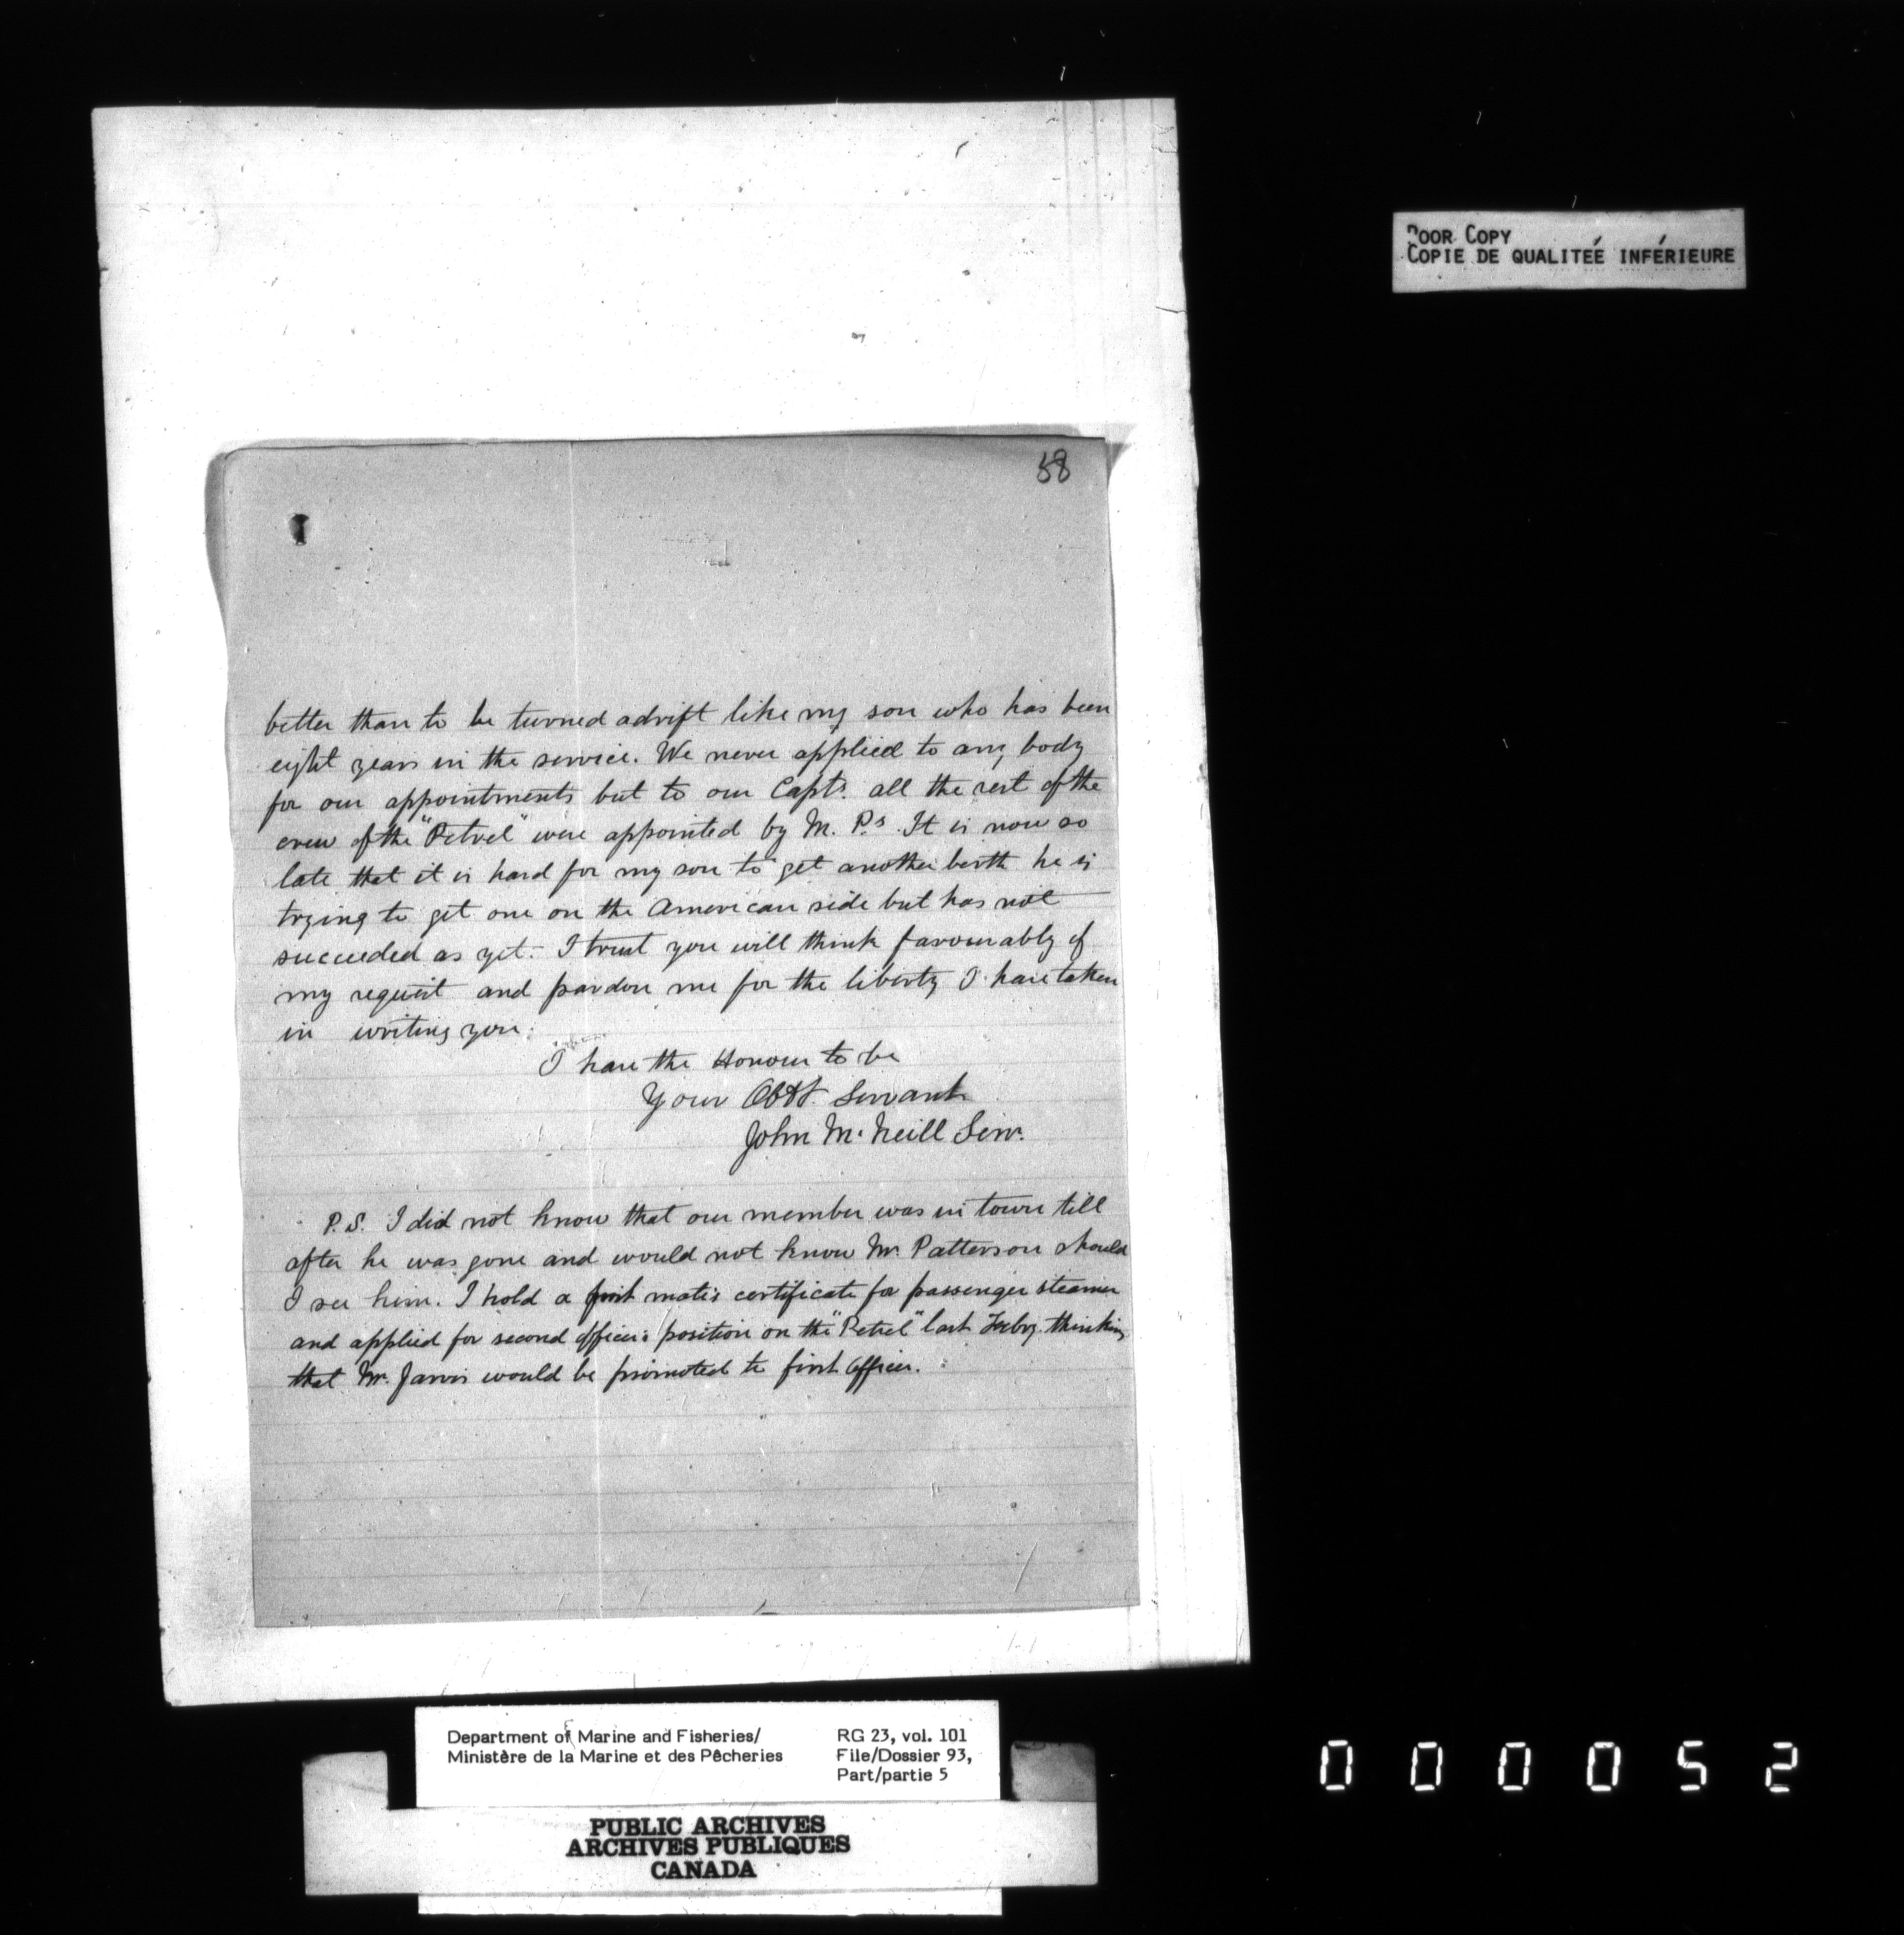 58
POOR COPY
COPIE DE QUALITÉE INFÉRIEURE
better than to be turned adrift like my son who has been
eight years in the service. We never applied to any body
for our appointments but to our Capts. all the rest of the
crew of the "Petrel" were appointed by M. P.s. It is now so
late that it is hard for my son to get another birth he is
trying to get one on the American side but has not
succeeded as yet. I trust you will think favourably of
my request and pardon me for the liberty I have taken
in writing you.
I have the Honour to be
Your Obdt. Servant
John McNeill Senr.
P.S. I did not know that our member was in town till
after he was gone and would not know Mr. Patterson should
I see him. I hold a first mate's certificate for passenger steamer
and applied for second officer's position on the "Petrel" last Feby. thinking
that Mr. Jarvis would be promoted to first officer.
Department of Marine and Fisheries/
Ministère de la Marine et des Pêcheries
RG 23, vol. 101
File/Dossier 93,
Part/partie 5
PUBLIC ARCHIVES
ARCHIVES PUBLIQUES
CANADA
000052